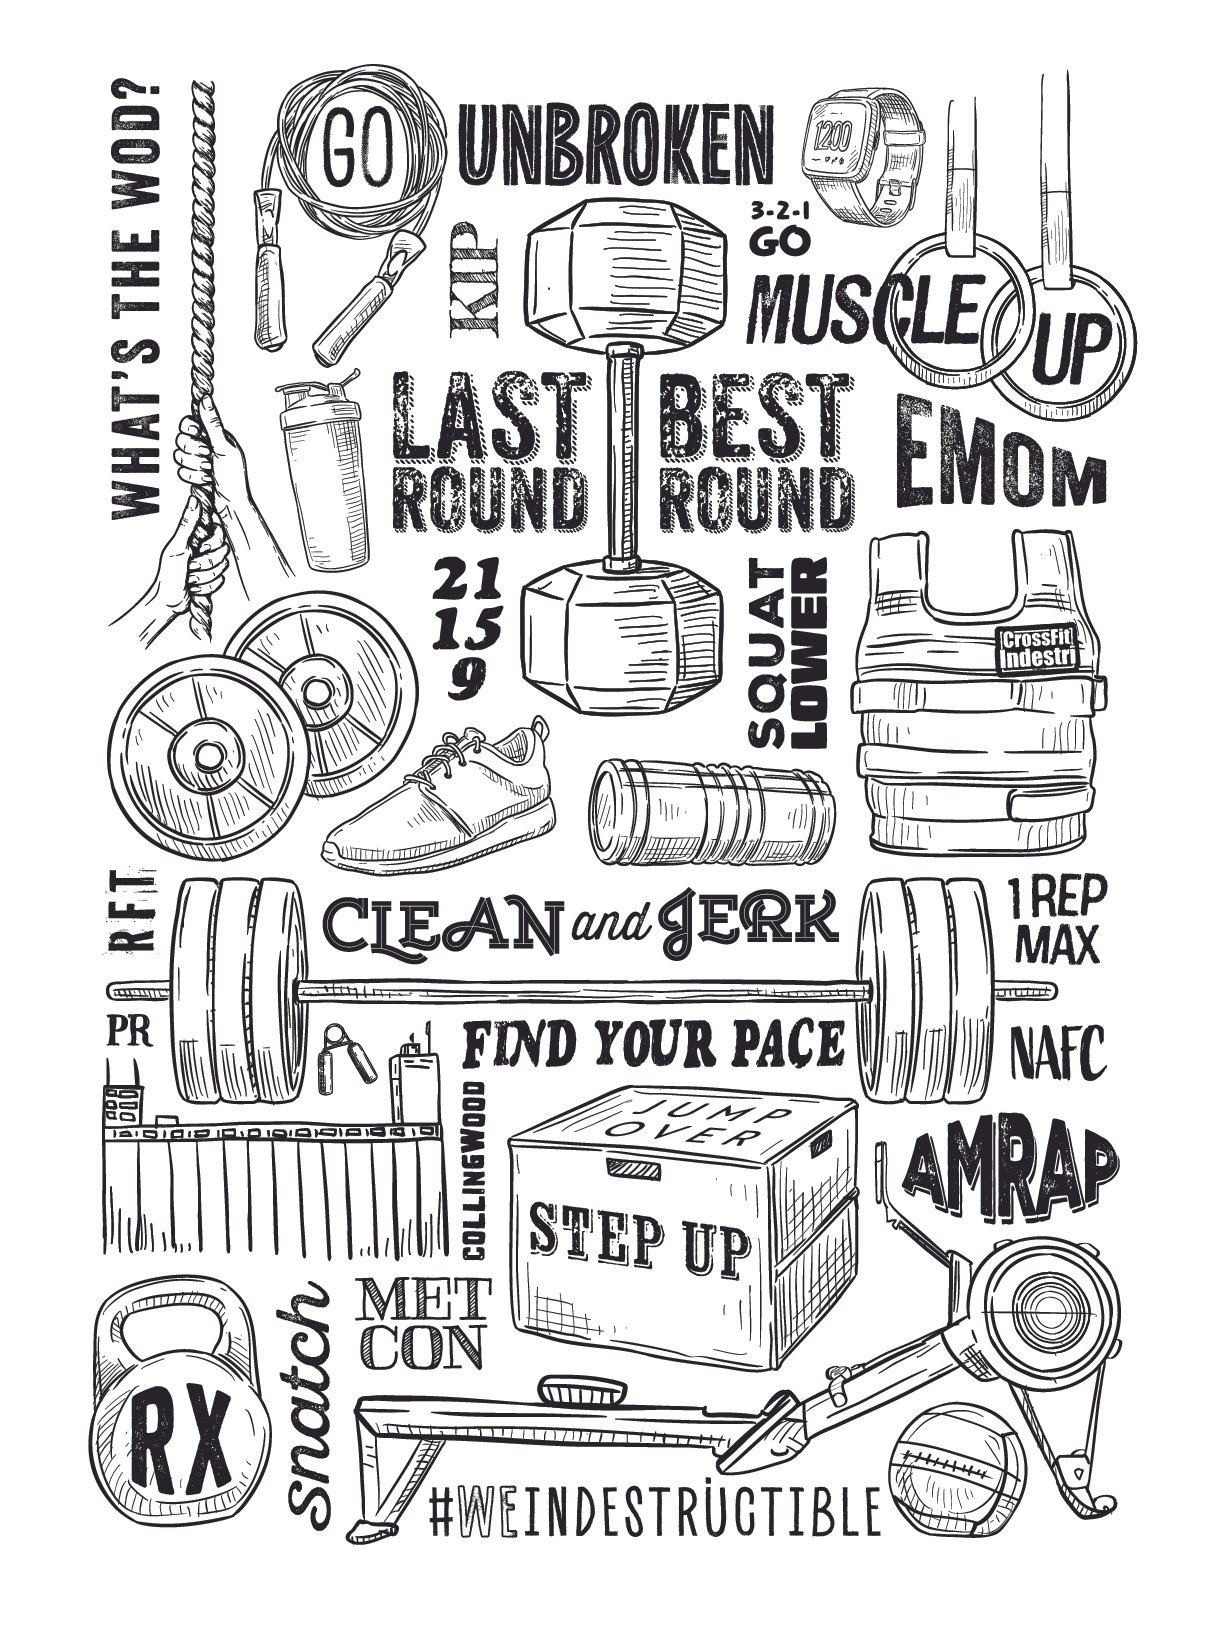 WHAT'S THE WOD?
GO
UNBROKEN
1200
3-2-1
GO
KIP
MUSCLE
UP
LAST
ROUND
BEST
ROUND
EMOM
21
15
9
SQUAT
LOWER
CrossFit
Indestri
RFT
CLEAN and JERK
1 REP
MAX
PR
FIND YOUR PACE
NAFC
COLLINGWOOD
JUMP
OVER
STEP UP
AMRAP
RX
Snatch
MET
CON
#WEINDESTRÜCTIBLE